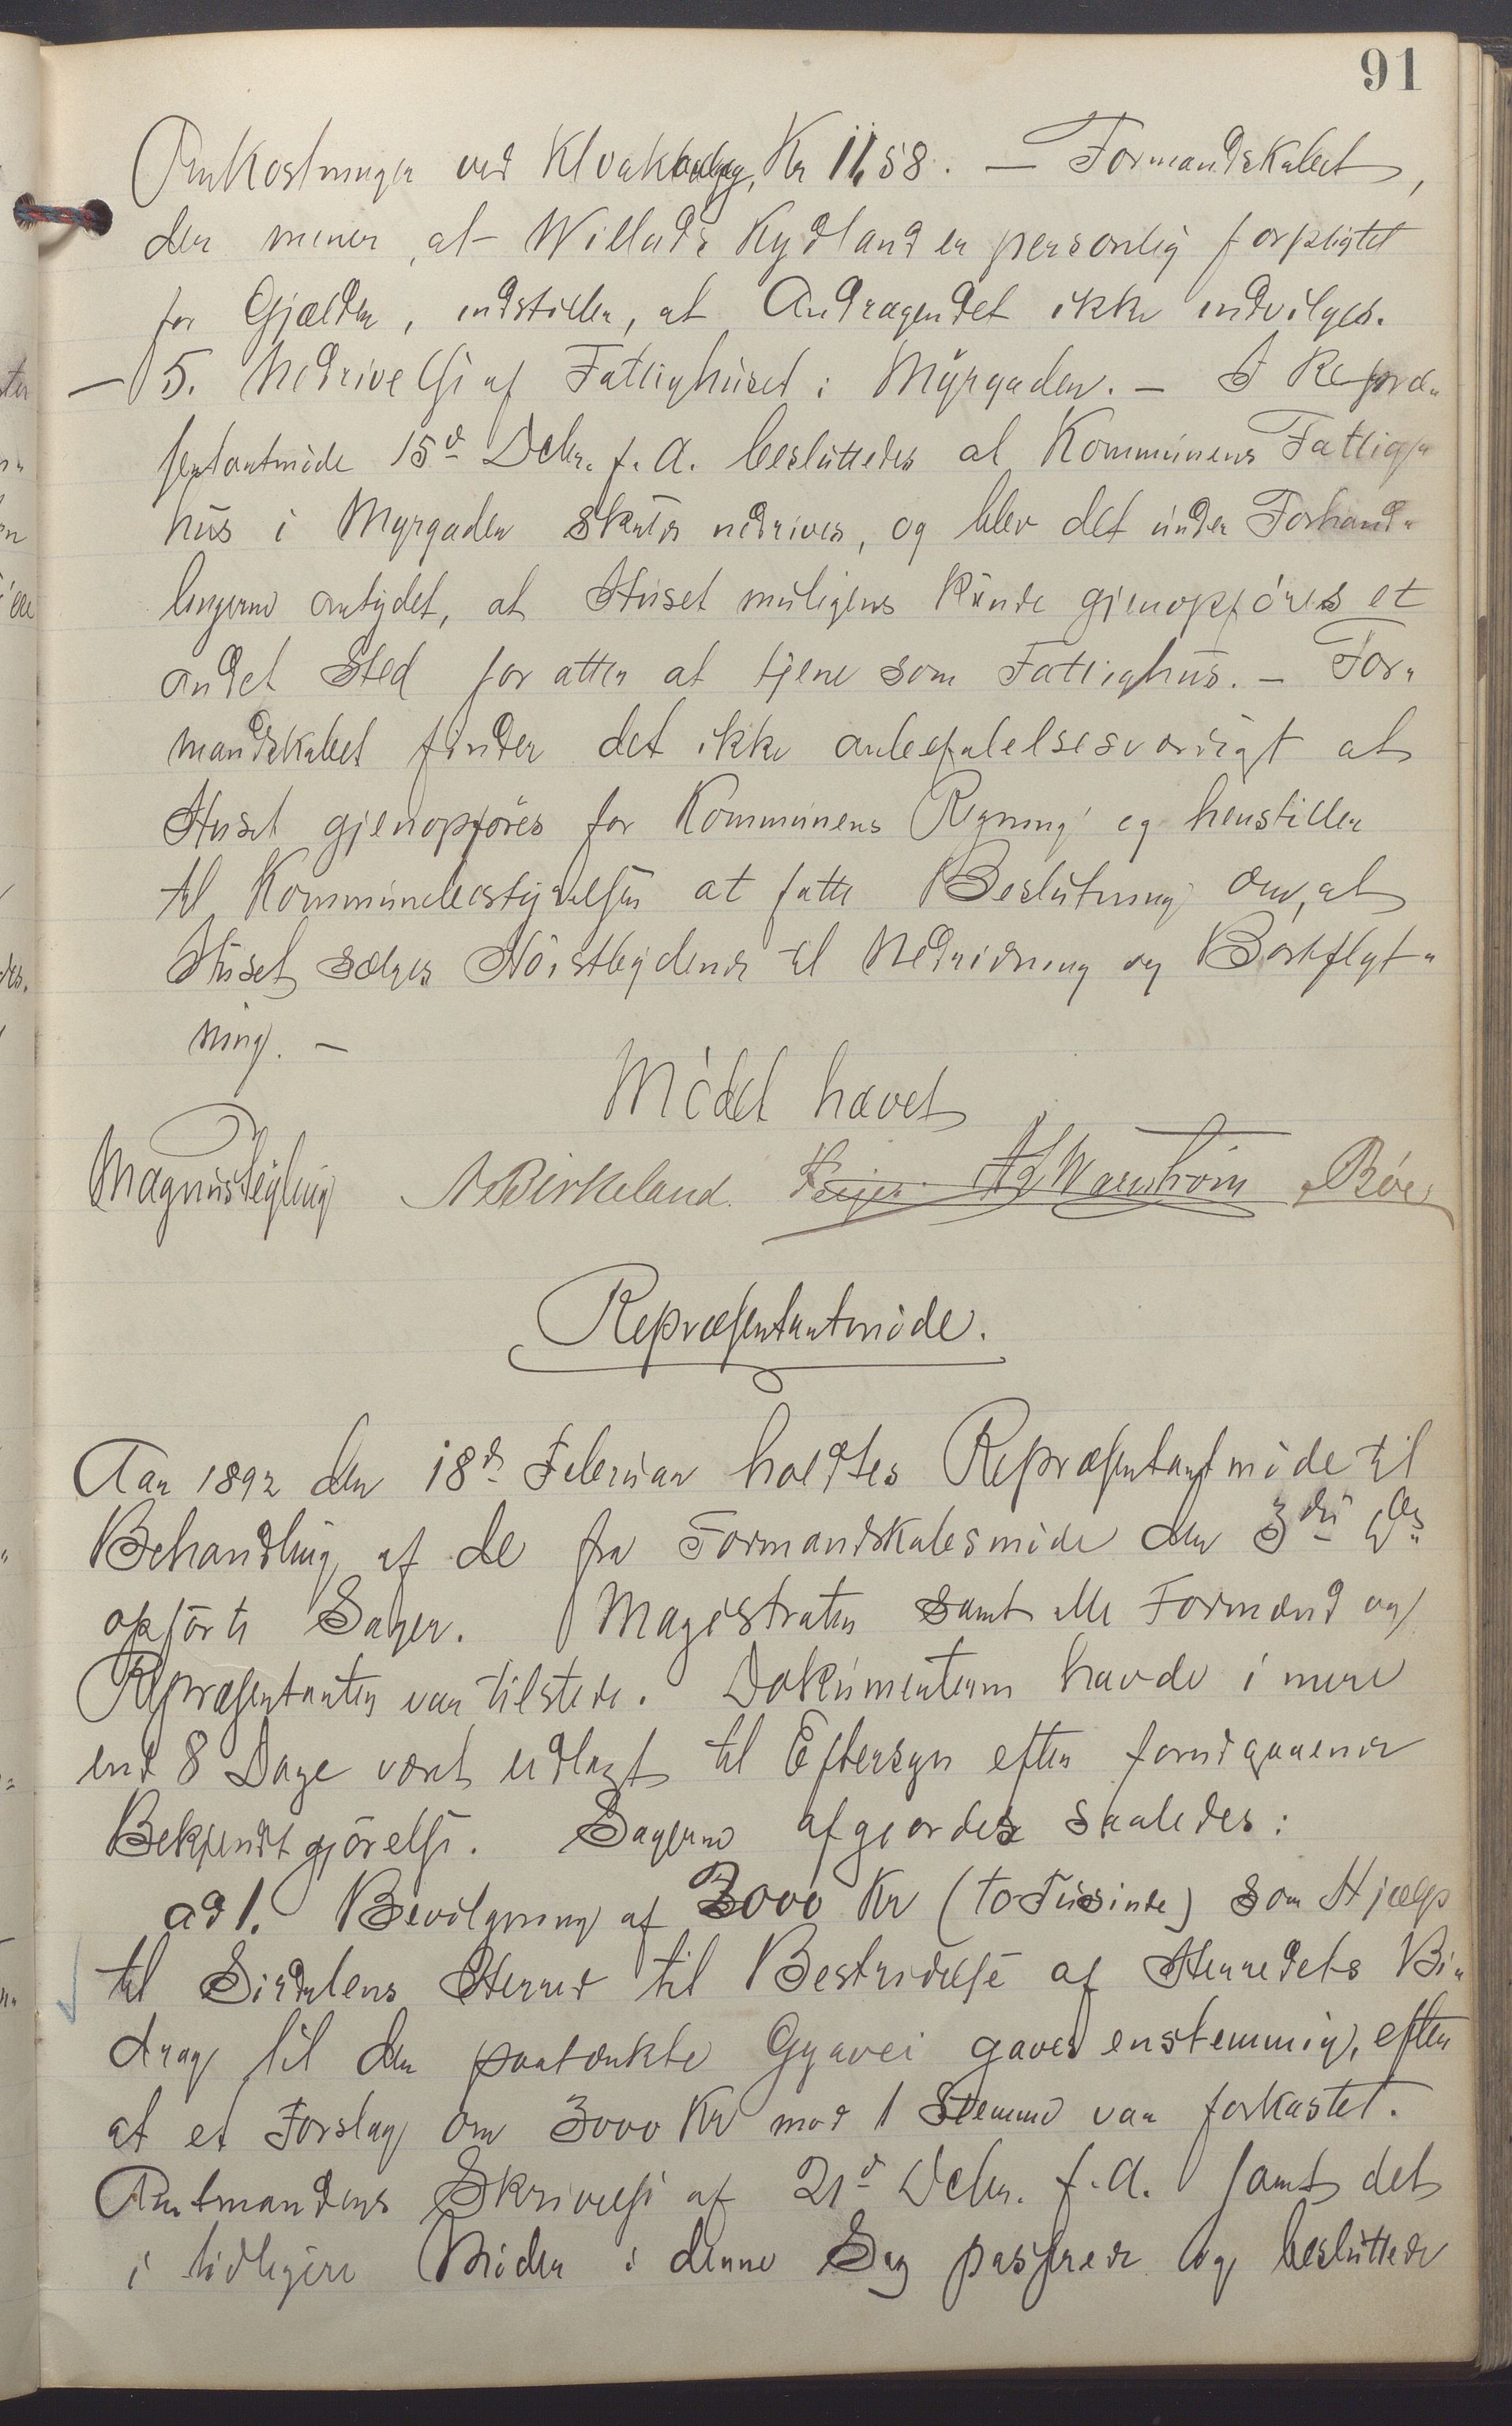 91
Omkostninger ved Kloakanlæg, Kr 11,58. — Formandskabet,
der mener, at Willads Rydland er personlig forpligtet
for Gjælden, indstiller, at Andragendet ikke indvilges.
— 5. Nedrivelse af Fattighuset i Myrgaden. — I Repræ-
sentantmøde 15d Decbr. f. A. besluttedes at Kommunens Fattig-
hus i Myrgaden skulde nedrives, og blev det under Forhand-
lingerne antydet, at Huset muligens kunde gjenopføres et
andet Sted for atter at tjene som Fattighus. — For-
mandskabet finder det ikke anbefalelsesværdigt at
Huset gjenopføres for Kommunens Regning og henstiller
til Kommunebestyrelsen at fatte Beslutning om, at
Huset sælges Høistbydende til Nedrivning og Bortflyt-
ning. —
Mødet hævet
Magnus N Birkeland. Warnstrøm Bøe
Repræsentantmøde.
Aar 1892 den 18de Februar holdtes Repræsentantmøde til
Behandling af de fra Formandskabsmøde den 3die ds
opførte Sager. Magistraten samt alle Formænd og
Repræsentanter var tilstede. Dokumenterne havde i mere
end 8 Dage været udlagt til Eftersyn efter forudgaaende
Bekjendtgjørelse. Sagerne afgjordes saaledes:
ad 1. Bevilgning af 2000 Kr (to Tusinde) som Hjælp
til Sirdalens Herred til Bestridelse af Herredets Bi-
drag til den paatænkte Gyavei gaves enstemmig, efter
at et Forslag om 3000 Kr mod 1 Stemme var forkastet.
Amtmandens Skrivelse af 21d Decbr. f. A. samt det
i tidligere Møder i denne Sag passerede og besluttede